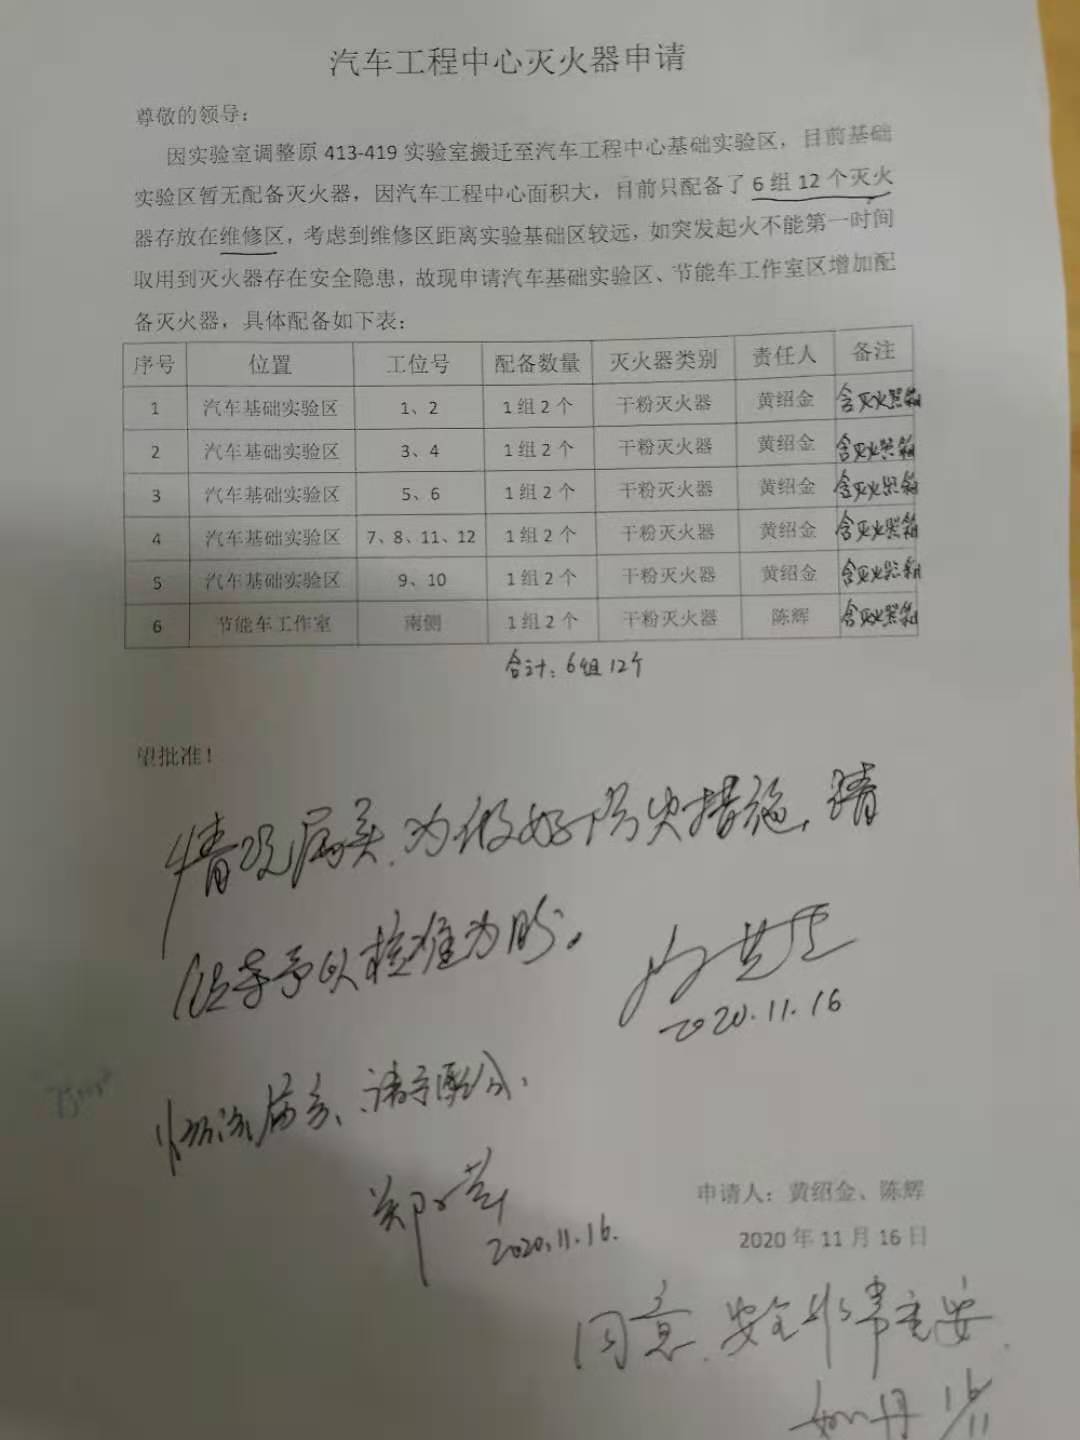 汽车工程中心灭火器申请
尊敬的领导：
因实验室调整原 413-419 实验室搬迁至汽车工程中心基础实验区，目前基础
实验区暂无配备灭火器，因汽车工程中心面积大，目前只配备了 6 组 12 个灭火
器存放在维修区，考虑到维修区距离实验基础区较远，如突发起火不能第一时间
取用到灭火器存在安全隐患，故现申请汽车基础实验区、节能车工作室区增加配
备灭火器，具体配备如下表：
序号 位置 工位号 配备数量 灭火器类别 责任人 备注
1 汽车基础实验区 1、2 1 组 2 个 干粉灭火器 黄绍金 含灭火器箱
2 汽车基础实验区 3、4 1 组 2 个 干粉灭火器 黄绍金 含灭火器箱
3 汽车基础实验区 5、6 1 组 2 个 干粉灭火器 黄绍金 含灭火器箱
4 汽车基础实验区 7、8、11、12 1 组 2 个 干粉灭火器 黄绍金 含灭火器箱
5 汽车基础实验区 9、10 1 组 2 个 干粉灭火器 黄绍金 含灭火器箱
6 节能车工作室 南侧 1 组 2 个 干粉灭火器 陈辉 含灭火器箱
合计：6组12个
望批准！
情况属实，为做好防火措施，请
领导予以核准为盼。
2020.11.16
情况属实、请予配备.
郑
2020.11.16.
申请人：黄绍金、陈辉
2020 年 11 月 16 日
同意，安全非常重要.
16/11